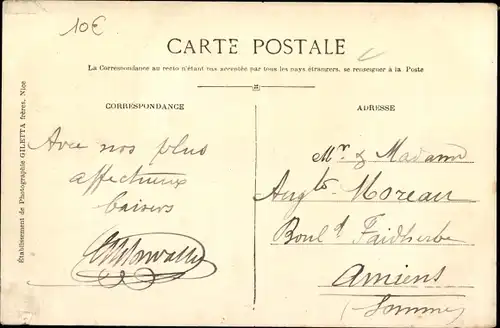 10€
CARTE POSTALE
La Correspondance au recto n'étant pas acceptée par tous les pays étrangers, se renseigner à la Poste
CORRESPONDANCE
ADRESSE
Avec nos plus
affectueux
baisers
Mr & Madame
Augte Moreau
Bould Faidherbe
Amiens
(Somme)
Établissement de Photographie GILETTA frères, Nice